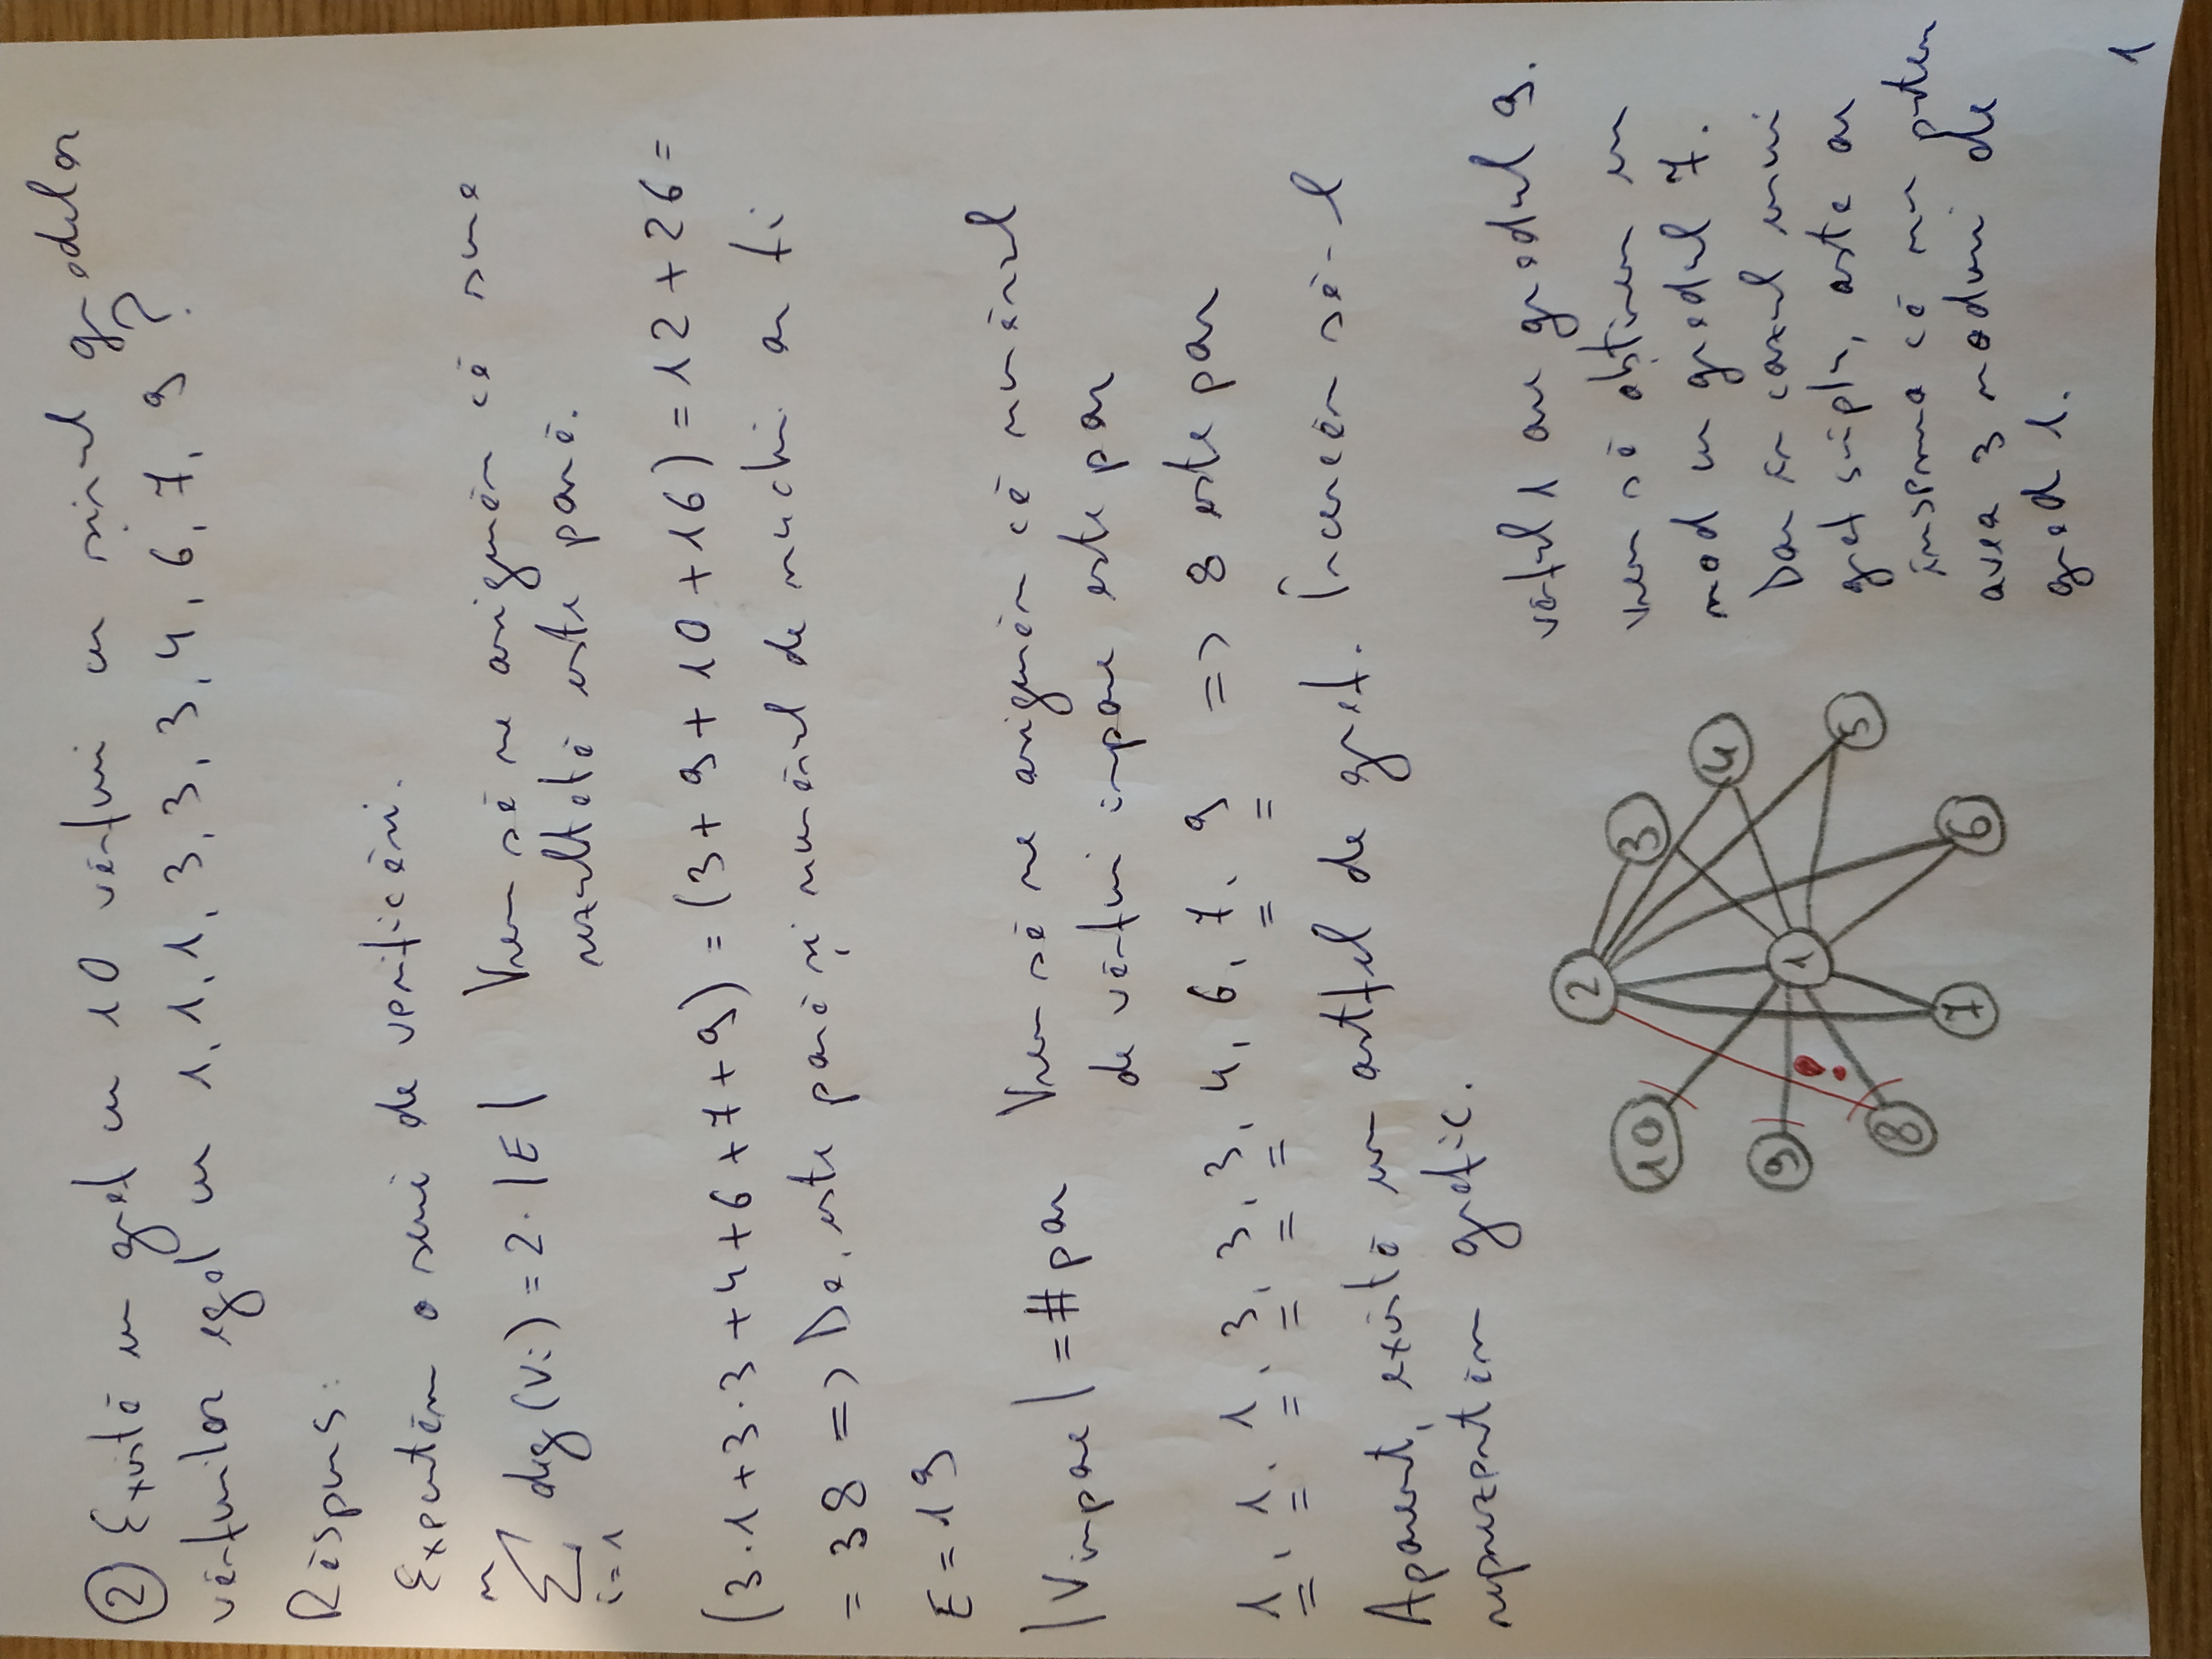 ② Există un graf cu 10 vârfuri cu șirul gradelor
vârfurilor egal cu 1, 1, 1, 3, 3, 3, 4, 6, 7, 9 ?
Răspuns:
Executăm o serie de verificări.
n
∑ deg(Vi) = 2·|E| Vrem să ne asigurăm că suma
i=1 rezultată este pară.
(3·1+3·3+4+6+7+9) = (3+9+10+16) = 12+26 =
= 38 => Da, este pară și numărul de muchii ar fi
E = 19
|Vimpare| = #par Vrem să ne asigurăm că numărul
de vârfuri impare este par
1, 1, 1, 3, 3, 3, 4, 6, 7, 9 => 8 este par
Aparent, există un astfel de graf. Încercăm să-l
reprezentăm grafic.
vârful 1 are gradul 9.
vrem să obținem un
nod cu gradul 7.
Dar în cazul unui
graf simplu, asta ar
însemna că nu putem
avea 3 noduri de
grad 1.
2
10
3
4
9
1
!
5
8
7
6
1